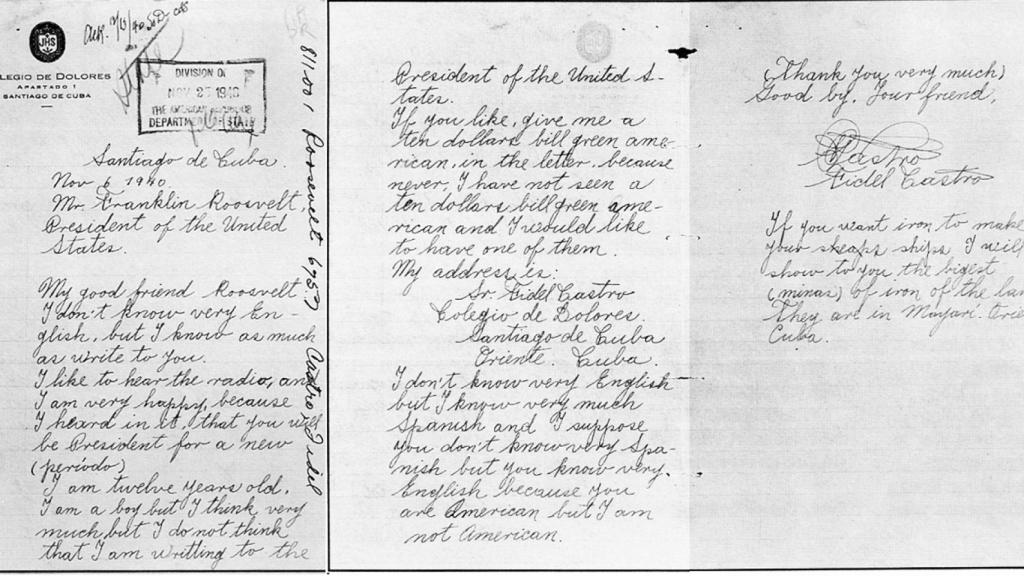 JHS
LEGIO DE DOLORES
APARTADO 1
SANTIAGO DE CUBA
DIVISION OF
NOV 27 1940
THE AMERICAN
DEPARTMENT OF STATE
Santiago de Cuba.
Nov 6 1940.
Mr. Franklin Roosvelt,
President of the United
States.
My good friend Roosvelt
I don't know very En-
glish, but I know as much
as write to you.
I like to hear the radio, and
I am very happy, because
I heard in it, that you will
be President for a new
(periodo)
I am twelve years old.
I am a boy but I think very
much, but I do not think
that I am writting to the
811.001 Roosevelt
Castro, Fidel
President of the United S-
tates.
If you like, give me a
ten dollars bill green ame-
rican, in the letter, because
never, I have not seen a
ten dollars bill green ame-
rican and I would like
to have one of them.
My address is:
Sr. Fidel Castro
Colegio de Dolores.
Santiago de Cuba
Oriente. Cuba.
I don't know very English
but I know very much
Spanish and I suppose
you don't know very Spa-
nish but you know very
English because you
are American but I am
not American.
(Thank you very much)
Good by. Your friend,
Castro
Fidel Castro
If you want iron to make
your sheaps ships I will
show to you the bigest
(minas) of iron of the lan
They are in Mayari. Orie
Cuba.